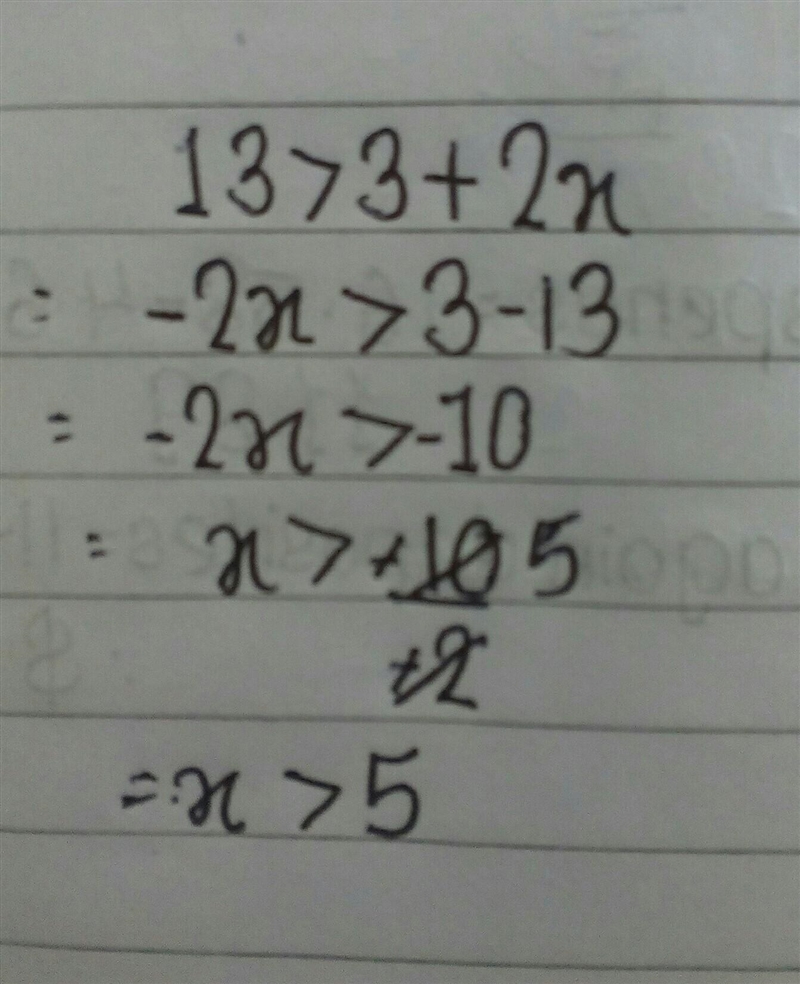 13>3+2x
= -2x>3-13
= -2x>-10
= x>-10 5
-2
=x>5